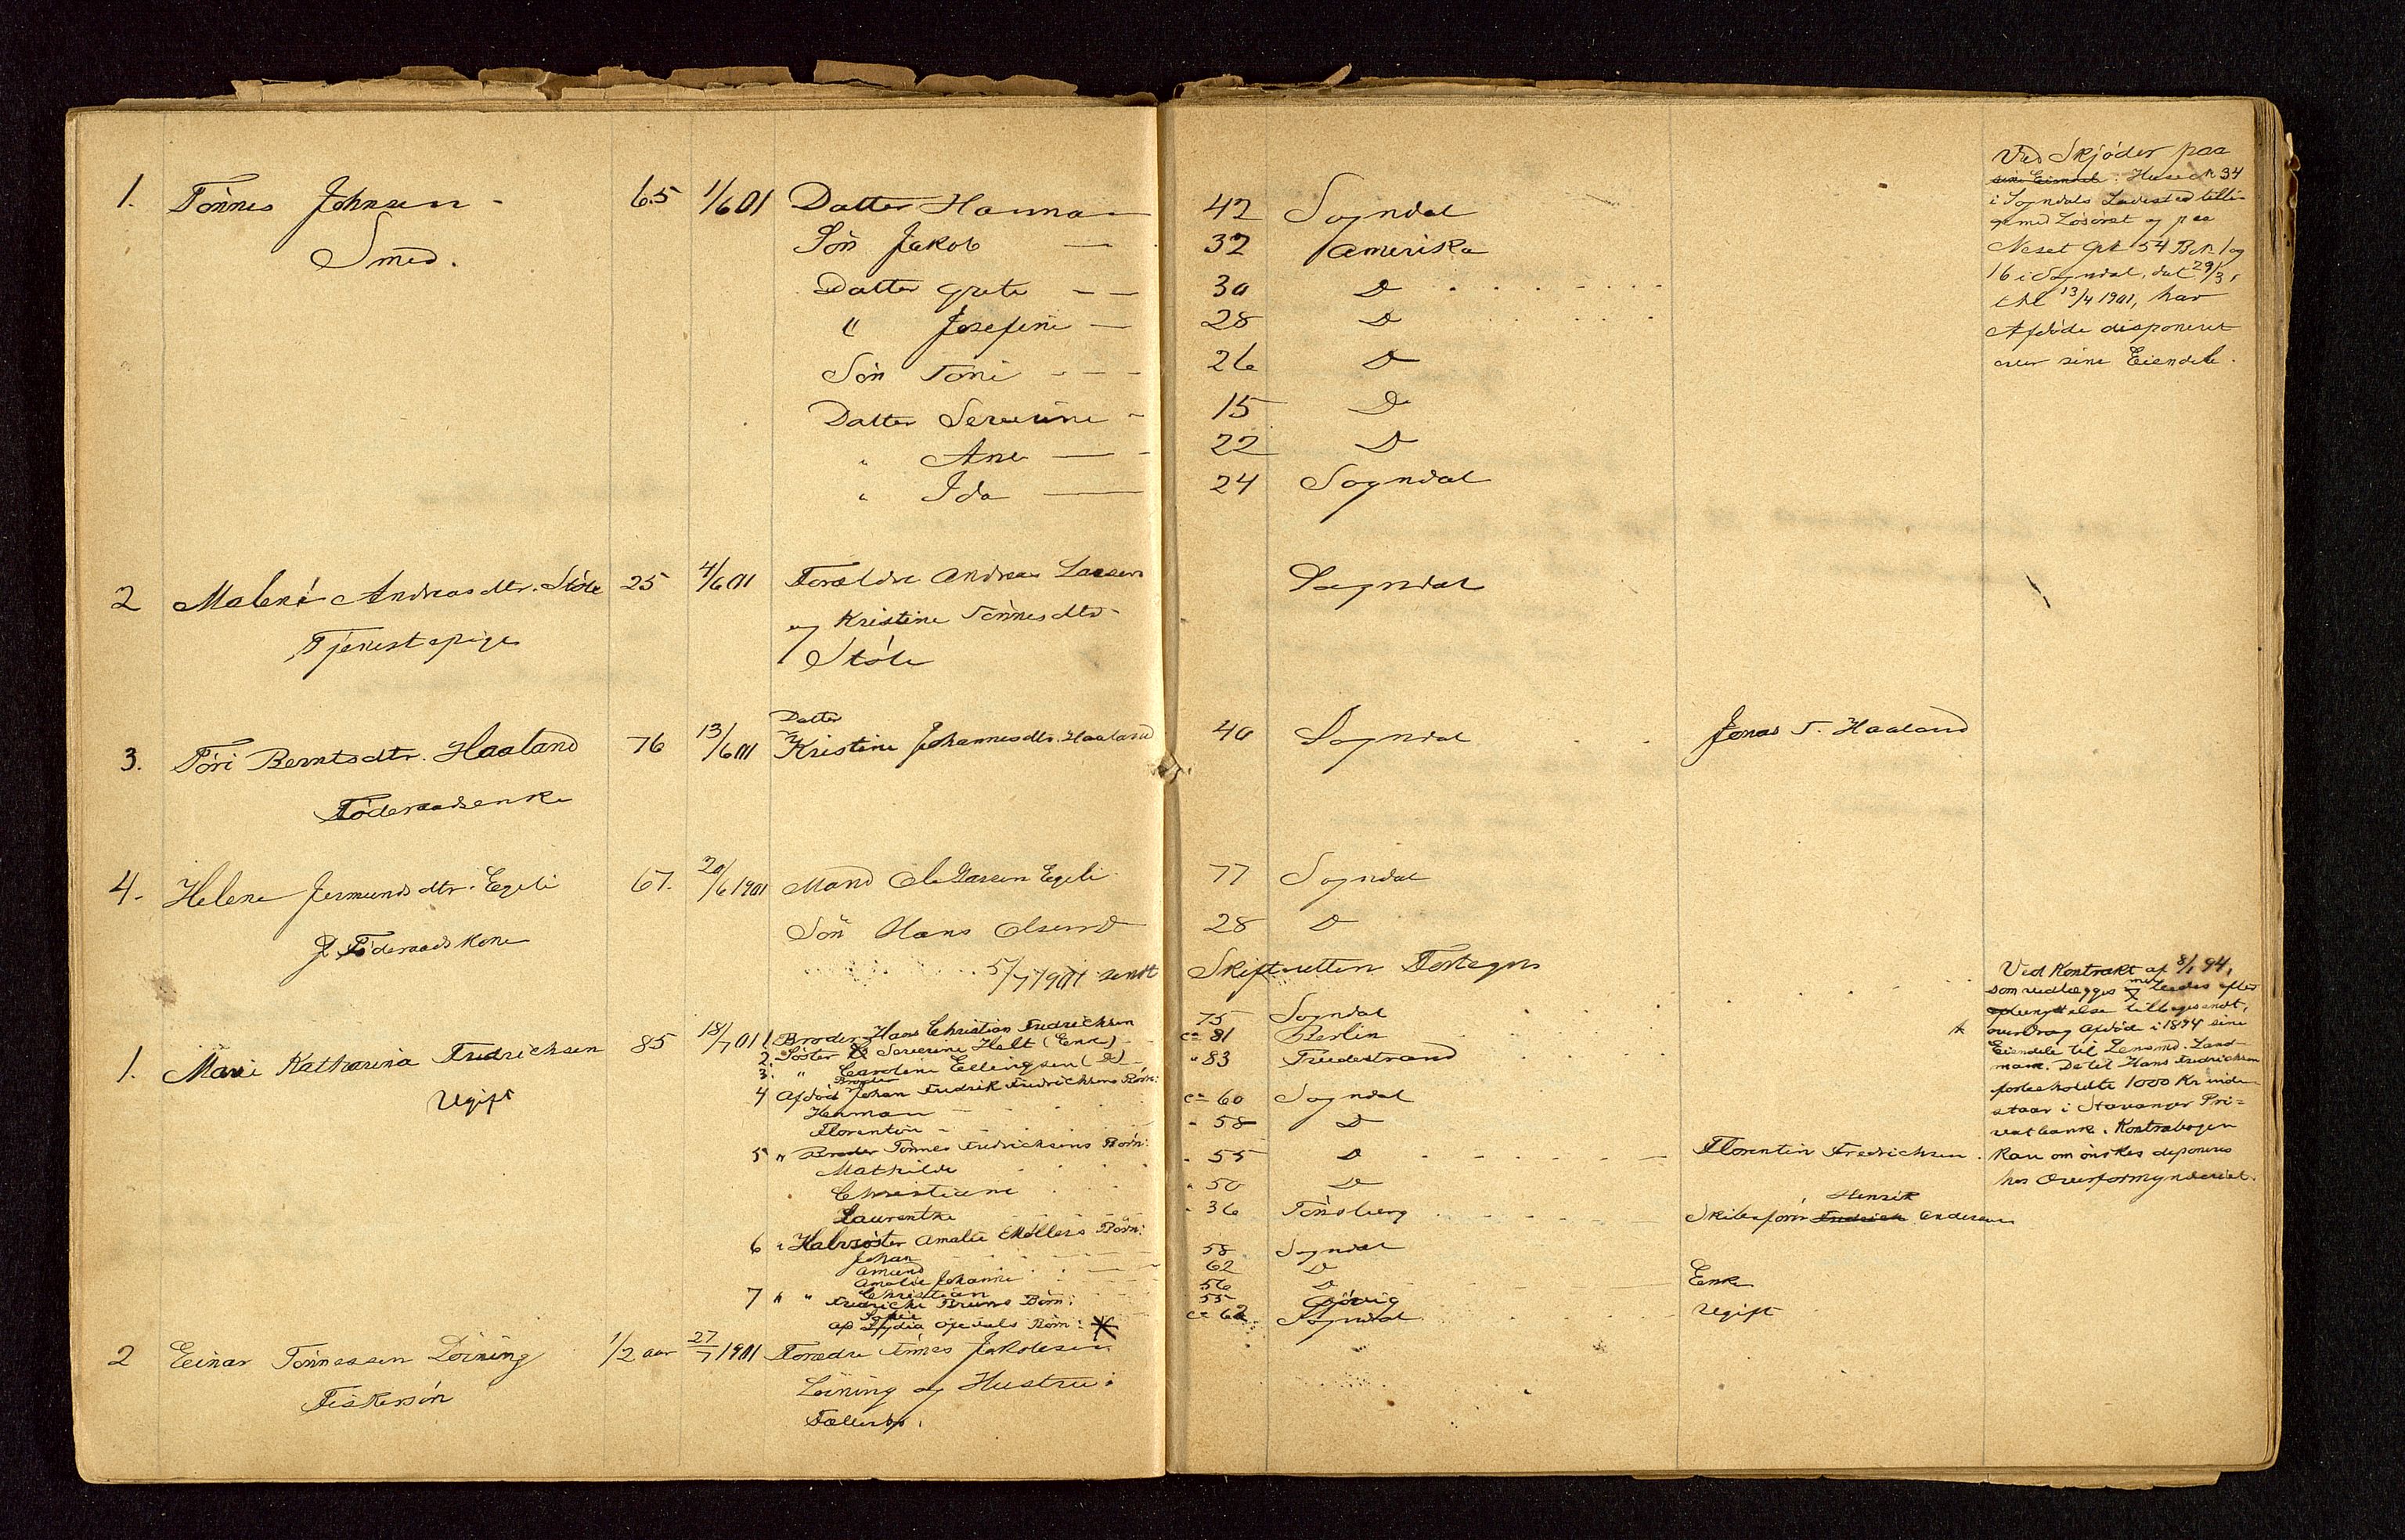 1. Tønnes Johnsen - 65 1/6 01 Datter Hanna 42 Sogndal
Smed. Søn Jakob — 32 Amerika
Datter Grete — — 30 D
" Josefine — 28 D
Søn Toni - - - 26 D
Datter Serine - 15 D
" Ane — - 22 D
" Ida — 24 Sogndal
Ved Skjøder paa
Huse M 34
i Sogndals Ladested tilli-
gemed Løsøret og paa
Neset Gn 54 Bn 1 og
16 i Sogndal, dat 29/3,
thl 13/4 1901, har
Afdøde disponeret
over sine Eiendele.
2 Malene Andreasdtr. Støle 25 4/6 01 Forældre Andreas Larsen Sogndal
Tjenestepige og Kristine Tønnesdtr
Støle
3. Tøri Berntsdtr. Haaland 76 13/6 01 Datter Kristine Johannesdtr. Haaland 40 Sogndal Jonas T. Haaland
Føderaadsenke
4. Helene Jermundsdtr. Egeli 67. 20/6 1901 Mand Ole Larsen Egeli 77 Sogndal
Føderaadskone Søn Hans Olsen 28 D
5/7 1901 sendt Skifteretten Fortegn
1. Marie Katharina Fredrichsen 85 18/7 01 1. Broder Hans Christian Fredrichsen 75 Sogndal
Ugift 2. Søster Severine Helt (Enke) ca 81 Berlin
3. " Caroline Ellingsen (D) " 83 Fredestrand
4 Afdød Broder Johan Fredrik Fredrichsens Børn:
Herman ca 60 Sogndal
Florentin - 58 D
5 " Broder Tønnes Fredrichsens Børn:
Mathilde - 55 D Florentin Fredrichsen.
Christiane " 50 D
Laurentze " 36 Tönsberg Skibsfører Fredrick Henrik Andersen
6 " Halvsøster Amalie Møllers Børn:
Johan 58 Sogndal
Amund 62 D
Amalie Johanne 56 D Enke
Christian 55 Gjøvig
7 " " Fredricke Bruns Børn:
Sofie ca 62 Sogndal Ugift
af Lydia Børn: *
Ved Kontrakt af 8/1 94,
som vedlægges med bedes efter
afbenyttelse tilbagesendt,
overdrog Afdøde i 1894 sine
Eiendele til Lensmd. Land-
mark. De til Hans Fredrichsen
forbeholdte 1000 Kr inde-
staar i Stavanger Pri-
vatbank. Kontrabogen
kan om ønskes deponeres
hos Overformynderiet.
2 Einar Tønnessen Löining 1/2 aar 27/7 1901 Forældre Tönnes Jakobsen
Fiskersön Löining og Hustru.
Fællesbo.